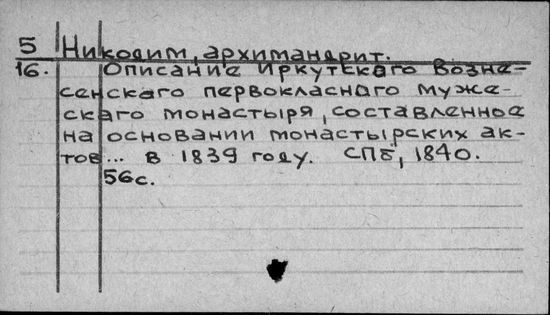 5 Никодим, архимандрит.
16. Описание Иркутскаго Возне-
сенскаго первокласнаго муже-
скаго монастыря, составленное
на основании монастырских ак-
тов... в 1839 году. СПб, 1840.
56с.